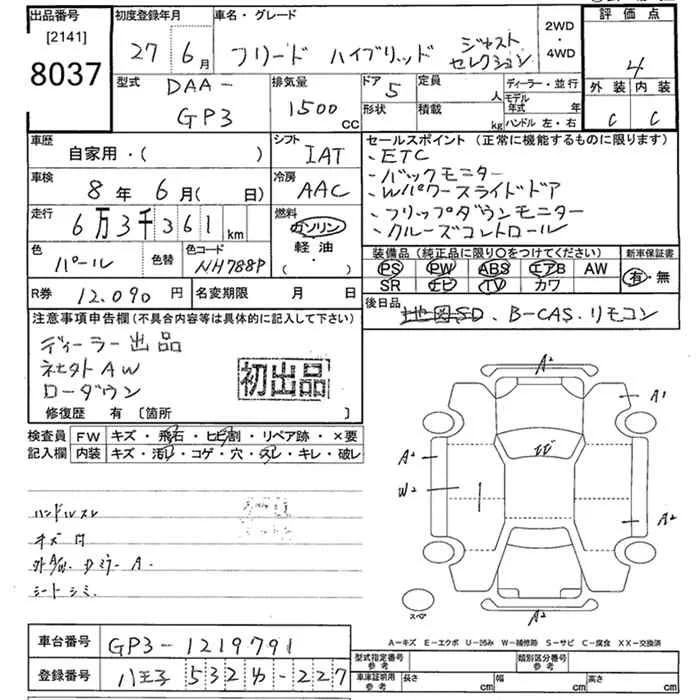 出品番号
[2141]
8037
初度登録年月
27年 6月
車名・グレード
フリード ハイブリッド ジャストセレクション
2WD
・
4WD
評価点
4
外装 内装
C C
型式
DAA-
GP3
排気量
1500 cc
ドア 5
形状
定員 人
積載 kg
ディーラー・並行
モデル年式 年
ハンドル 左・右
車歴
自家用・( )
シフト
IAT
車検
8年 6月( 日)
冷房
AAC
走行
6万3千361km
燃料
ガソリン
軽油・
( ・ )
色
パール
色替
色コード
NH788P
R券 12,090円
名変期限 月 日
セールスポイント (正常に機能するものに限ります)
・ETC
・バックモニター
・Wパワースライドドア
・フリップダウンモニター
・クルーズコントロール
装備品 (純正品に限り○をつけてください)
新車保証書
PS PW ABS エアB AW
SR ナビ TV カワ
有・無
後日品
地図SD、B-CAS.リモコン
注意事項申告欄 (不具合内容等は具体的に記入して下さい)
ディーラー出品
ネセタトAW
ローダウン
初出品
修復歴 有 〔箇所 〕
検査員
記入欄
FW キズ・飛石・ヒビ割・リペア跡・×要
内装 キズ・汚れ・コゲ・穴・スレ・キレ・破レ
ハンドルスレ
キズ 凹
外A/W. Dミラー A.
シートシミ.
A2
A1
A2
W2
A2
A2
スペア
A-キズ E-エクボ U-凹み W-補修跡 S-サビ C-腐食 XX-交換済
車台番号 GP3-1219791
登録番号 八王子 532 や-・227
型式指定番号
参考
類別区分番号
参考
車庫証明用
参考
長さ cm 幅 cm 高さ cm